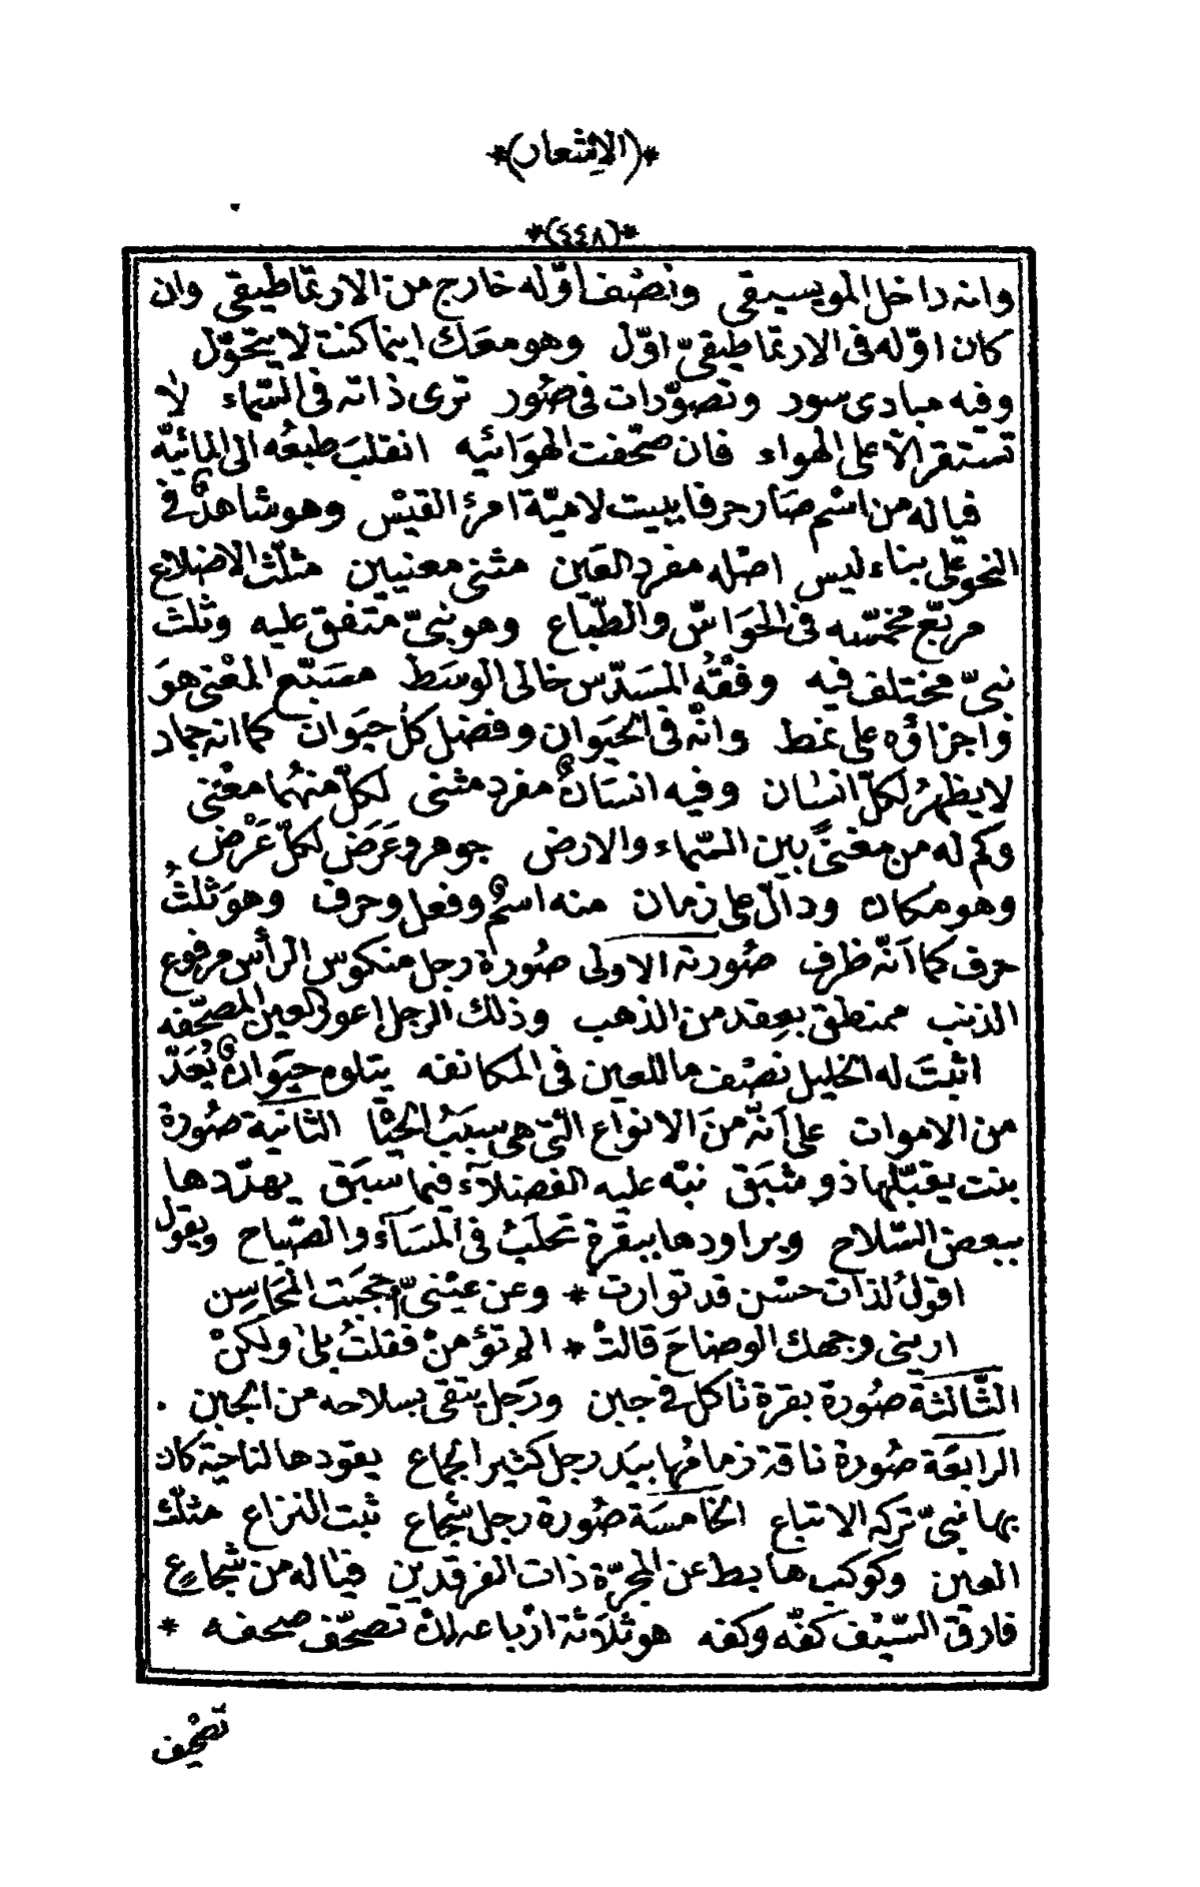 *(الاشعار)*
*(٤٤٨)*
وانه داخل الموسيقى ونصف اوّله خارج من الارتماطيقى وان
كان اوّله فى الارتماطيقىّ اوّل وهو معك اينما كنت لا يتحوّل
وفيه مبادى سور وتصوّرات فى صُور ترى ذاته فى السّماء لا
تستقر الّا على الهواء فان صحّفت الهوَائيه انقلبَ طبعُه الى المائيّه
فياله من اسْم صَار حرفا ببيت لاميّة امرئ القيْس وهو شاهدٌ فى
النحو على بناء ليس اصْله مفرد العَين مثنى معنيين مثلّث الاضلاع
مربّع مخمّسه فى الحوَاسّ والطّباع وهو نبىّ متفق عليه وثلث
نبىّ مختلف فيه وفقُهُ المسَدّس خالى الوسَط مسَبّع المعْنى هوَ
واجزاؤه على نمط وانّه فى الحيَوان وفضل كل حيَوان كما انه جماد
لا يظهرُ لكلّ انسان وفيه انسَانٌ مفرد مثنى لكلّ منهُما معْنى
وكم له من معْنىً بين السّماء والارض جوهر وعَرَض لكلّ عَرْض
وهو مكان ودالّ على زمان منه اسمٌ وفعل وحرف وهوَ ثلثُ
حرف كما اَنّه ظرف صُورته الاولى صُورة رجل منكوس الرأس مرفوع
الذنب ممنطق بعِقد من الذهب وذلك الرجل اعور العين المصحّفه
اثبتَ له الخليل نصْف ما للعين فى المكانفه يتلوه حيَوانٌ يُعَدّ
من الاموات على اَنّه منَ الانواع الّتى هى سببُ الحيَاة الثانيَة صُورة
بنت يقبّلها ذو شبَق نبّه عليه الفضلآء فيما سبَق يهدّدها
ببعض السّلاح ويراودها ببقرة تحلَبُ فى المسَآء والصّباح ويقول
اقولُ لذات حسْن قد توارت * وعن عيْنىّ احجَبَت المحَاسِن
ارينى وجهك الوضاحَ قالتْ * الم تؤمنْ فقلتُ بلى ولكنْ
الثّالثة صُورة بقرة تاكل فى جبن ورَجل يتقى بسلاحه من الجبن .
الرابعَة صُورة ناقة زمامُها بيَد رجل كثير الجماع يقودها لناحية كان
بها نبىّ تركه الاتباع الخامسَة صُورة رجل شجاع ثبت النزاع مثلّث
العين وكوكب هابط عن المجرّة ذات الفرقدين فياله من شجاعٍ
فارق السّيْف كفّه وكفه هو ثلاَثة ارْباعه اِنْ تصحّف صحفه *
تصْحّف